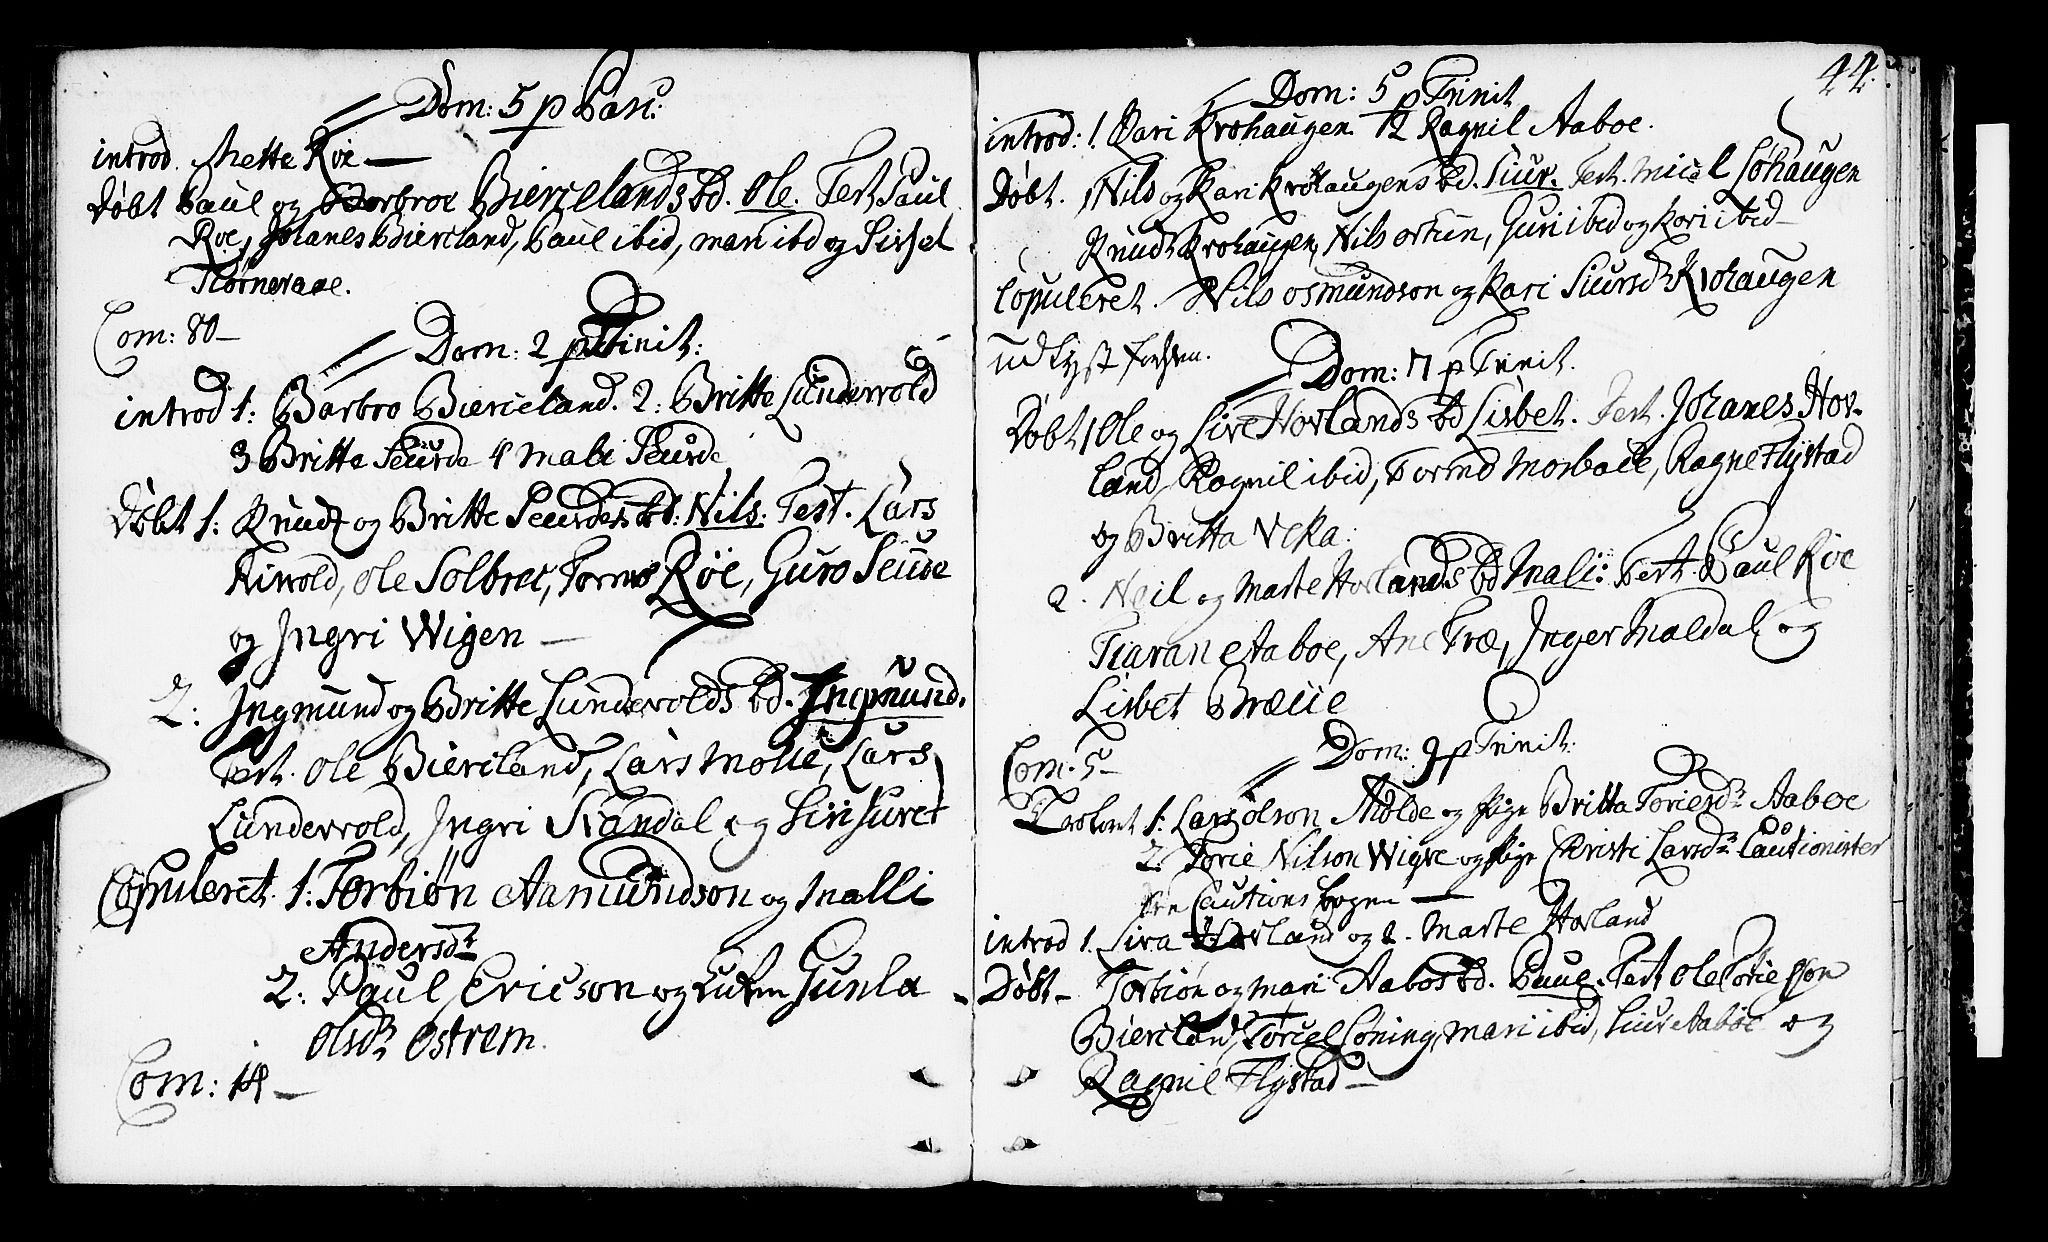 Dom: 5 p Pasc:
introd. Mette Roe
Døbt Paul og Barbroe Biercelands bd. Ole. Test Paul
Roe, Johanes Biercland, Paul ibid, mari ibd og Sissel
Tiørneraae.
Com: 80
Dom: 2 p Trinit:
introd 1: Barbro Biercieland. 2: Britte Lundervold
3 Britte Seurde 4 Mali Seurde
Døbt 1: Knud og Britte Seurdes bd: Nils. Test. Lars
Kirvold, Ole Solbrec, Tormo Röe, Guro Seurde
og Ingri Wigen
2: Ingmund og Britte Lundervolds bd. Ingmund.
Test. Ole Biercland, Lars Molle, Lars
Lundervold, Ingri Svandal og Siri
Copuleret. 1: Torbiøn Aamundson og Malli
Andersdr
2: Paul Ericson og Gunla
Olsdr Ostrem.
Com: 14
44.
Dom: 5 p Trinit
introd: 1. Kari Krohaugen. 2 Ragnil Aaboe.
Døbt. 1 Nils og Kari Krohaugens bd. Siur. Test. Micel Løhaugen
Knud Krohaugen, Nils ortun, Guri ibid og Kari ibid
Copuleret. Nils Osmundson og Kari Siursdr Krohaugen
udlyst
Dom: 7 p Trinit.
Døbt 1 Ole og Sire Hovlands bd Lisbet. Test. Johanes Hov-
land, Ragnil ibid, Tormo Mosbacke, Ragne Flystad
og Britta Veka.
2. Neil og Marte Hovlands bd Mali: Test. Paul Roe
Tiaran Aaboe, Ane Træ, Inger Maldal og
Lisbet Bræcke
Com. 5
Dom: 9 p Trinit:
Trolovet 1: Lars Olson Molde og Pige Britta Toriesdr Aaboe
2. Torie Nilson Wigre og Pige Christi Larsdr Cautionister
see Cautions bogen
introd 1. Sira Hovland og 2. Marte Hovland
Døbt Torbiøn og mari Aabos bd. Paul. Test Ole Torieson
Biercland, Torcel Løning, mari ibid, Siur Aaboe og
Ragnil Flystad